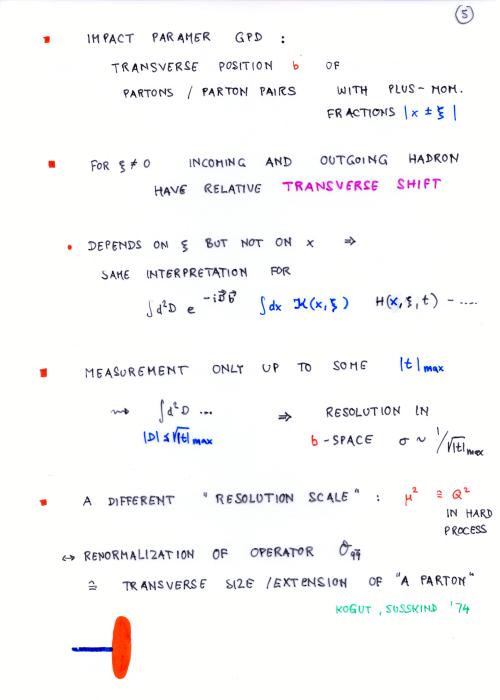 5
IMPACT PARAMER GPD :
TRANSVERSE POSITION b OF
PARTONS / PARTON PAIRS WITH PLUS-MOM.
FRACTIONS |x ± ξ|
FOR ξ ≠ 0 INCOMING AND OUTGOING HADRON
HAVE RELATIVE TRANSVERSE SHIFT
DEPENDS ON ξ BUT NOT ON x ⇒
SAME INTERPRETATION FOR
∫d²D e^{-i\vec{D}\vec{b}} ∫dx K(x,ξ) H(x,ξ,t) - ....
MEASUREMENT ONLY UP TO SOME |t|max
⇝ ∫d²D ... ⇒ RESOLUTION IN
|D| ≤ √|t|max b-SPACE σ ~ 1/√|t|max
A DIFFERENT "RESOLUTION SCALE" : μ² ≅ Q²
IN HARD
PROCESS
↔ RENORMALIZATION OF OPERATOR O_{q\bar{q}}
≙ TRANSVERSE SIZE / EXTENSION OF "A PARTON"
KOGUT, SUSSKIND '74